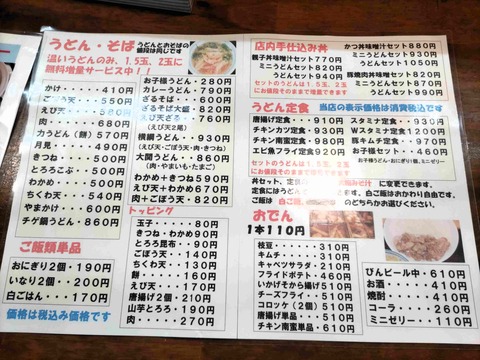 うどん・そば うどんとおそばの値段は同じです
温いうどんのみ、1.5玉、2玉に
無料増量サービス中！！
かけ 410円
ごぼう天 550円
えび天 580円
肉 580円
月見 480円
力うどん（餅）570円
きつね 500円
とろろこぶ 500円
わかめ 500円
ちくわ天 540円
やまかけ 600円
チゲ鍋うどん 860円
お子様うどん 280円
カレーうどん 790円
ざるそば 600円
ざるそば大盛 820円
えび天ざる 760円
（えび天2尾）
横綱うどん 930円
（えび天・ごぼう天・肉・きつね）
大関うどん 860円
（肉・やまいも・たまご）
わかめ＋きつね 590円
えび天＋わかめ 670円
肉＋ごぼう天 820円
ご飯類単品
おにぎり2個 190円
いなり2個 200円
白ごはん 170円
価格は税込み価格です
トッピング
玉子 80円
きつね・わかめ 90円
とろろ昆布 90円
ごぼう天 140円
ちくわ天 130円
餅 160円
えび天 170円
唐揚げ2個 210円
山芋とろろ 190円
肉 270円
店内手仕込み丼
親子丼味噌汁セット 770円
ミニうどんセット 820円
うどんセット 940円
セットのうどんは1.5玉、2玉
にお値段そのままで増量できます
かつ丼味噌汁セット 880円
ミニうどんセット 930円
うどんセット 1050円
豚焼肉丼味噌汁セット 820円
ミニうどんセット 870円
うどんセット 990円
うどん定食 当店の表示価格は消費税込です
唐揚げ定食 910円
チキンカツ定食 930円
チキン南蛮定食 980円
エビ魚フライ定食 920円
セットのうどんは1.5玉、2玉
にお値段そのままで増量できます
スタミナ定食 930円
Wスタミナ定食 1200円
豚キムチ定食 970円
お子様セット 460円
お子様うどん・おにぎり1個、ミニゼリー
に変更できます。
ご飯はおかわり自由です。
のどちらかお選びください。
おでん
1本110円
枝豆 310円
キムチ 310円
キャベツサラダ 210円
フライドポテト 460円
いかげそから揚げ 510円
チーズフライ 510円
コロッケ（2個）510円
唐揚げ単品 510円
チキン南蛮単品 560円
びんビール中 610円
お酒 410円
焼酎 410円
コーラ 260円
ミニゼリー 110円